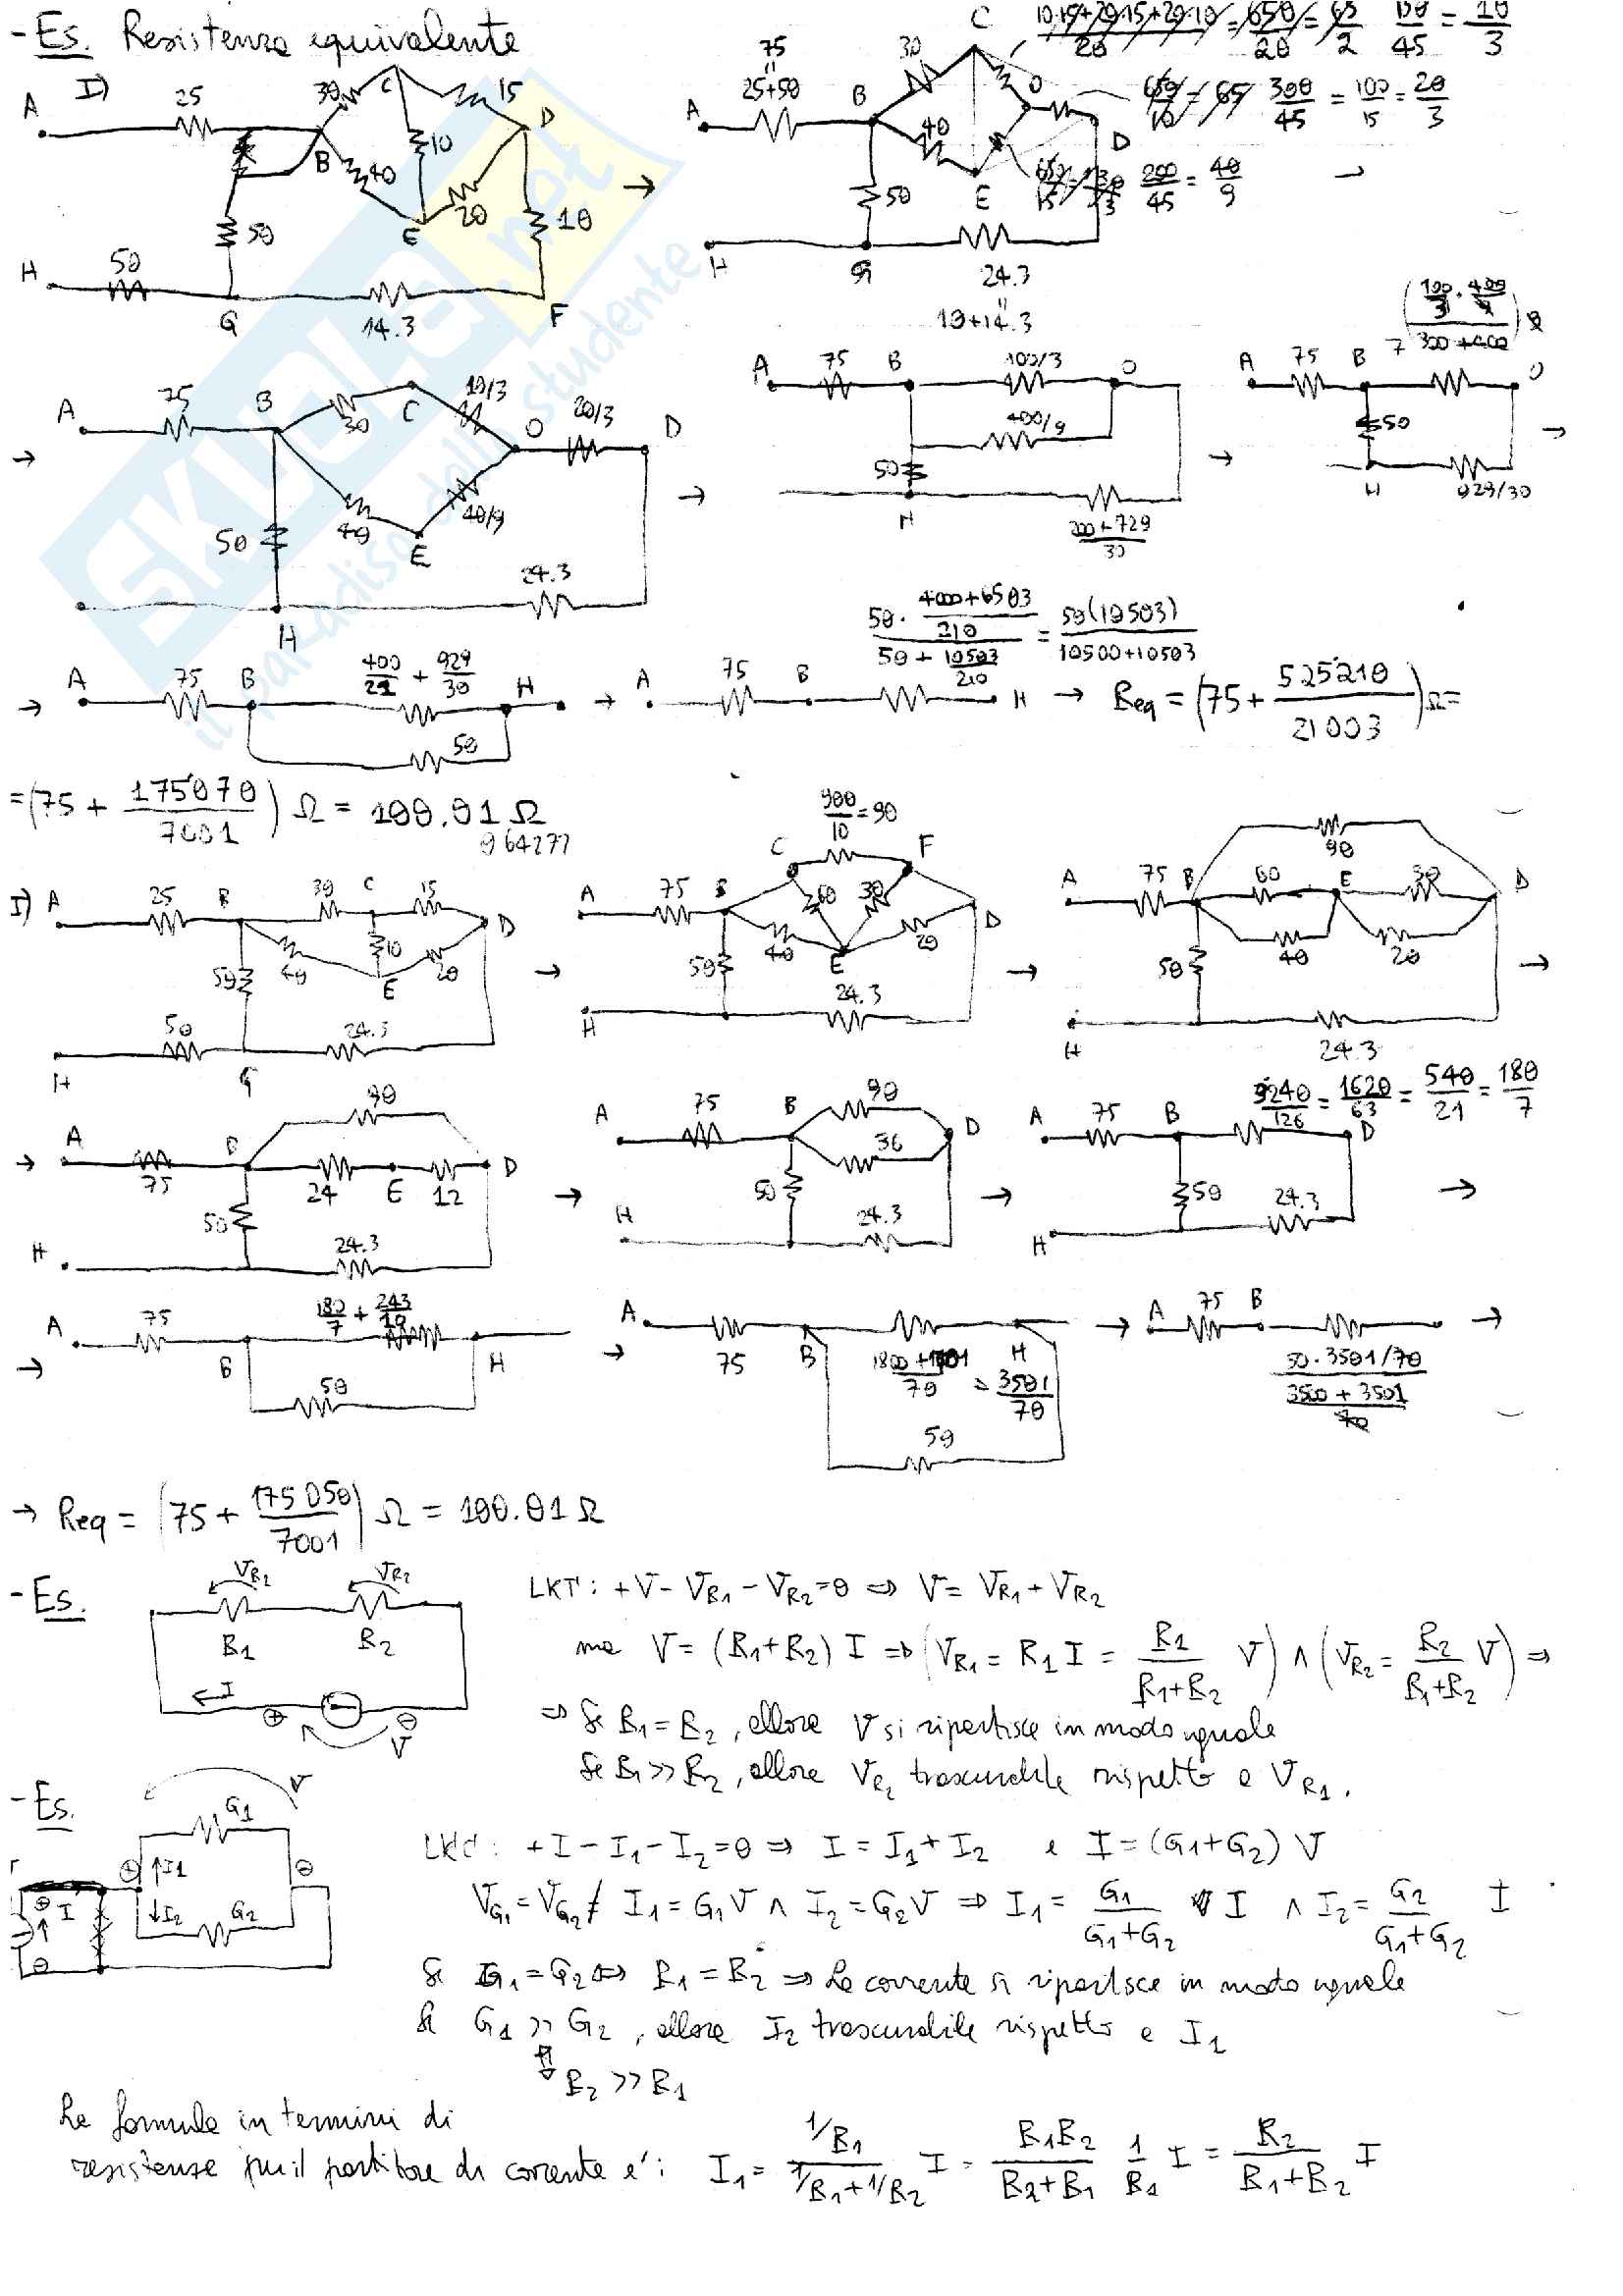 - Es. Resistenza equivalente
I)
A 25 B 30 C 15 D
40 10 20 E
50 10
H 50 G 14.3 F
A 75 = 25+50 B 30 C O D
40 E 50
H G 24.3 = 10+14.3
150/45 = 10/3
300/45 = 100/15 = 20/3
200/45 = 40/9
→
→ A 75 B 30 C 10/3 O 20/3 D
50 40 E 40/9
H 24.3
→ A 75 B 100/3 O
400/9
50 H (200+729)/30
→ A 75 B O
50
H 929/30 →
→ A 75 B 400/21 + 929/30 H
50
→ A 75 B H
50 · (4000+6503)/210 / (50 + 10503/210) = 50(10503)/(10500+10503)
→ Req = (75 + 525210/21003) Ω =
= (75 + 175070/7001) Ω = 100.01 Ω
I) A 25 B 30 C 15 D
50 40 10 E 20
H 50 G 24.3
→ A 75 B C 900/10 = 90 F D
60 30 40 E 20
50 H 24.3
→ A 75 B 90 D
60 E 30
40 20
50 H 24.3 →
→ A 75 B 90 D
24 E 12
50 H 24.3
→ A 75 B 90 D
36
50 H 24.3
→ A 75 B 3240/126 = 1620/63 = 540/21 = 180/7 D
50 24.3 H →
→ A 75 B 180/7 + 243/10 H
50
→ A 75 B H
(1800+1701)/70 = 3501/70
50
→ A 75 B
50 · 3501/70 / ((3500+3501)/70) →
→ Req = (75 + 175050/7001) Ω = 100.01 Ω
- Es. VR1 VR2
R1 R2
I ⊕ ⊖ V
LKT: +V - VR1 - VR2 = 0 ⇒ V = VR1 + VR2
ma V = (R1+R2) I ⇒ (VR1 = R1 I = R1/(R1+R2) V) ∧ (VR2 = R2/(R1+R2) V) ⇒
⇒ Se R1 = R2, allora V si ripartisce in modo uguale
Se R1 >> R2, allora VR2 trascurabile rispetto a VR1.
- Es. V
G1
⊕ ↑I1 ⊖
⊕ I ↓I2 G2
⊖
LKC: +I - I1 - I2 = 0 ⇒ I = I1 + I2 e I = (G1+G2) V
VG1 = VG2 I1 = G1 V ∧ I2 = G2 V ⇒ I1 = G1/(G1+G2) I ∧ I2 = G2/(G1+G2) I
Se G1 = G2 ⇔ R1 = R2 ⇒ La corrente si ripartisce in modo uguale
Se G1 >> G2, allora I2 trascurabile rispetto a I1
⇕
R2 >> R1
La formula in termini di
resistenze per il partitore di corrente e': I1 = (1/R1)/(1/R1+1/R2) I = R1R2/(R2+R1) 1/R1 I = R2/(R1+R2) I
SKUOLA.net
il paradiso dello studente